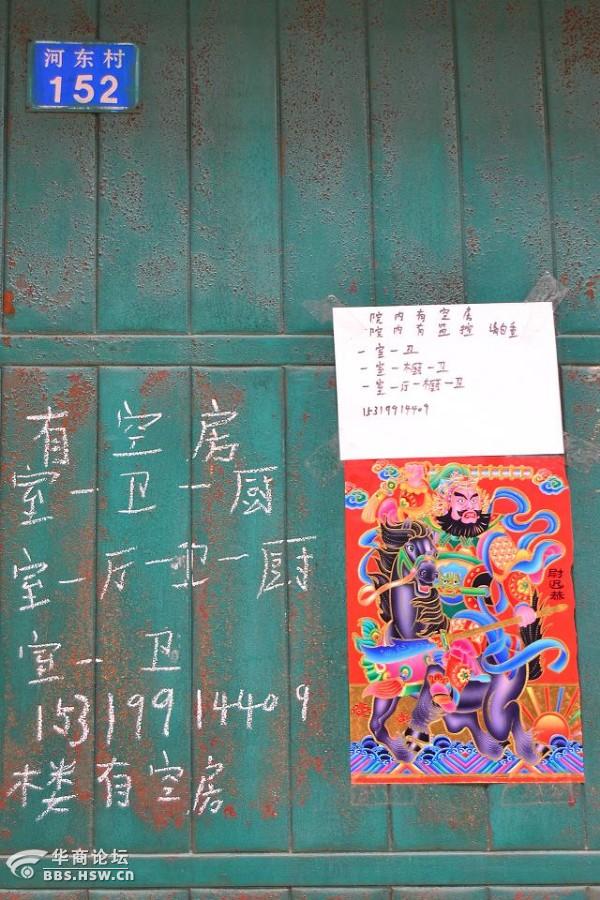 河东村
152
院内有空房
院内有监控 请自重
一室一卫
一室一橱一卫
一室一厅一橱一卫
15319914409
尉迟恭
有空房
室一卫一厨
室一厅一卫一厨
室一卫
15319914409
楼有空房
华商论坛
BBS.HSW.CN